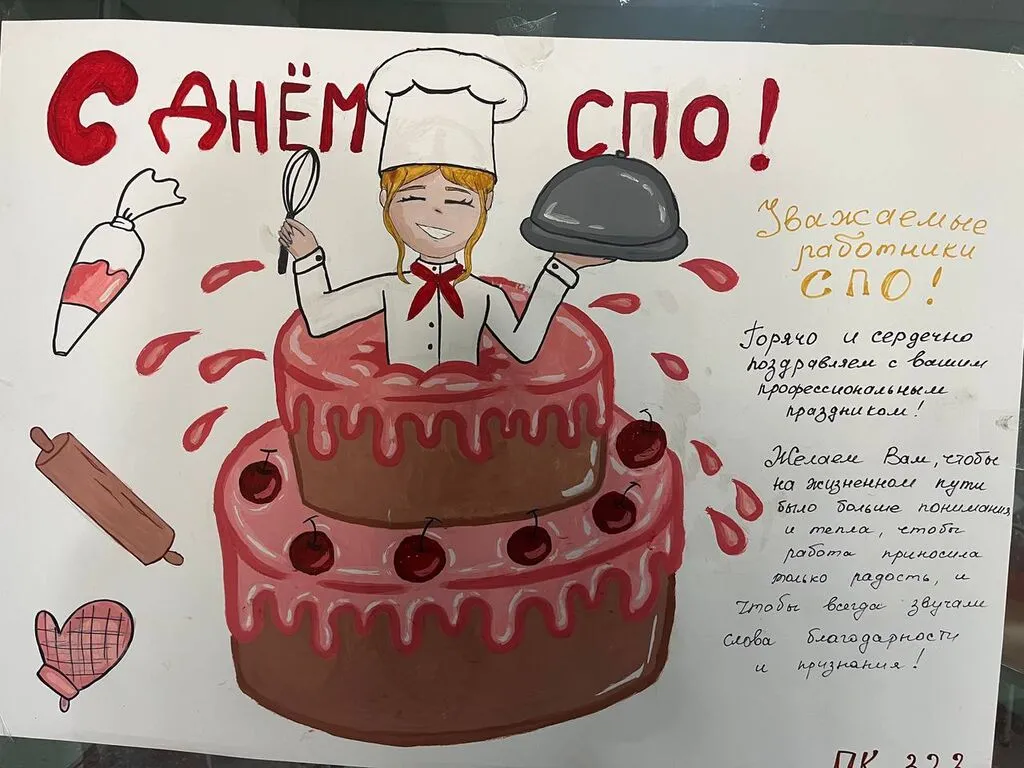 С ДНЁМ СПО!
Уважаемые
работники
СПО!
Горячо и сердечно
поздравляем с вашим
профессиональным
праздником!
Желаем Вам, чтобы
на жизненном пути
было больше понимания
и тепла, чтобы
работа приносила
только радость, и
чтобы всегда звучали
слова благодарности
и признания!
ПК 323